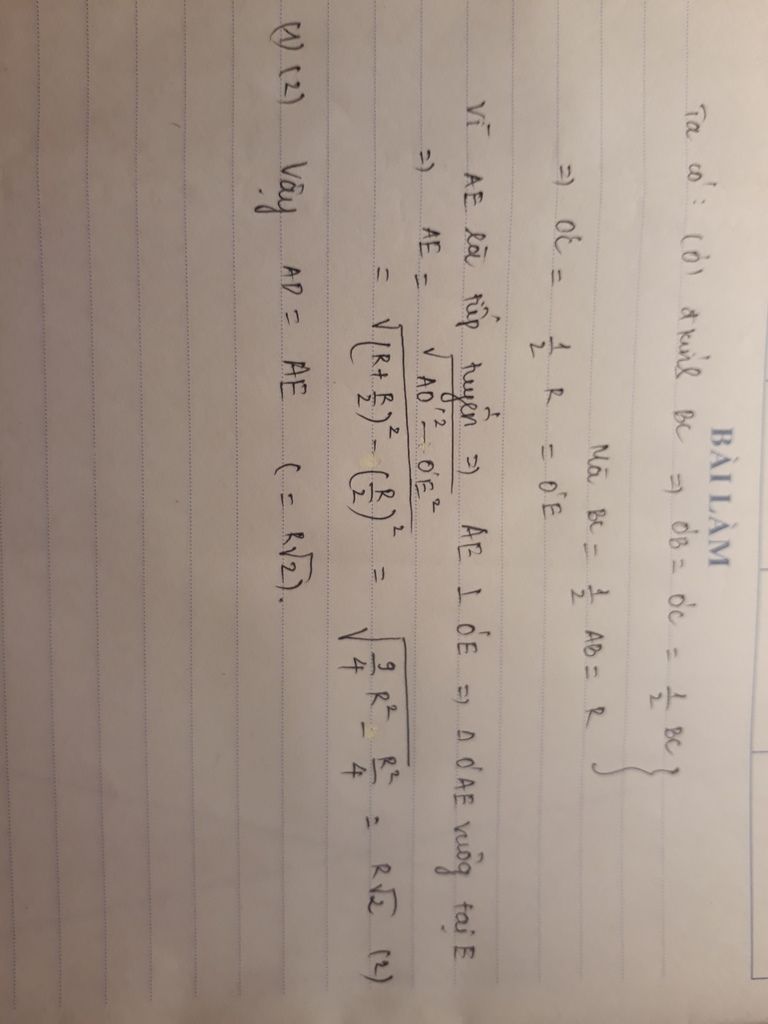 BÀI LÀM
Ta có: (O') đkính BC => O'B = O'C = 1/2 BC }
Mà BC = 1/2 AB = R }
=> O'C = 1/2 R = O'E
Vì AE là tiếp tuyến => AE ⊥ O'E => Δ O'AE vuông tại E
=> AE = √(AO'² - O'E²)
= √((R + R/2)² - (R/2)²) = √(9/4 R² - R²/4) = R√2 (2)
(1) (2) Vậy AD = AE (= R√2).